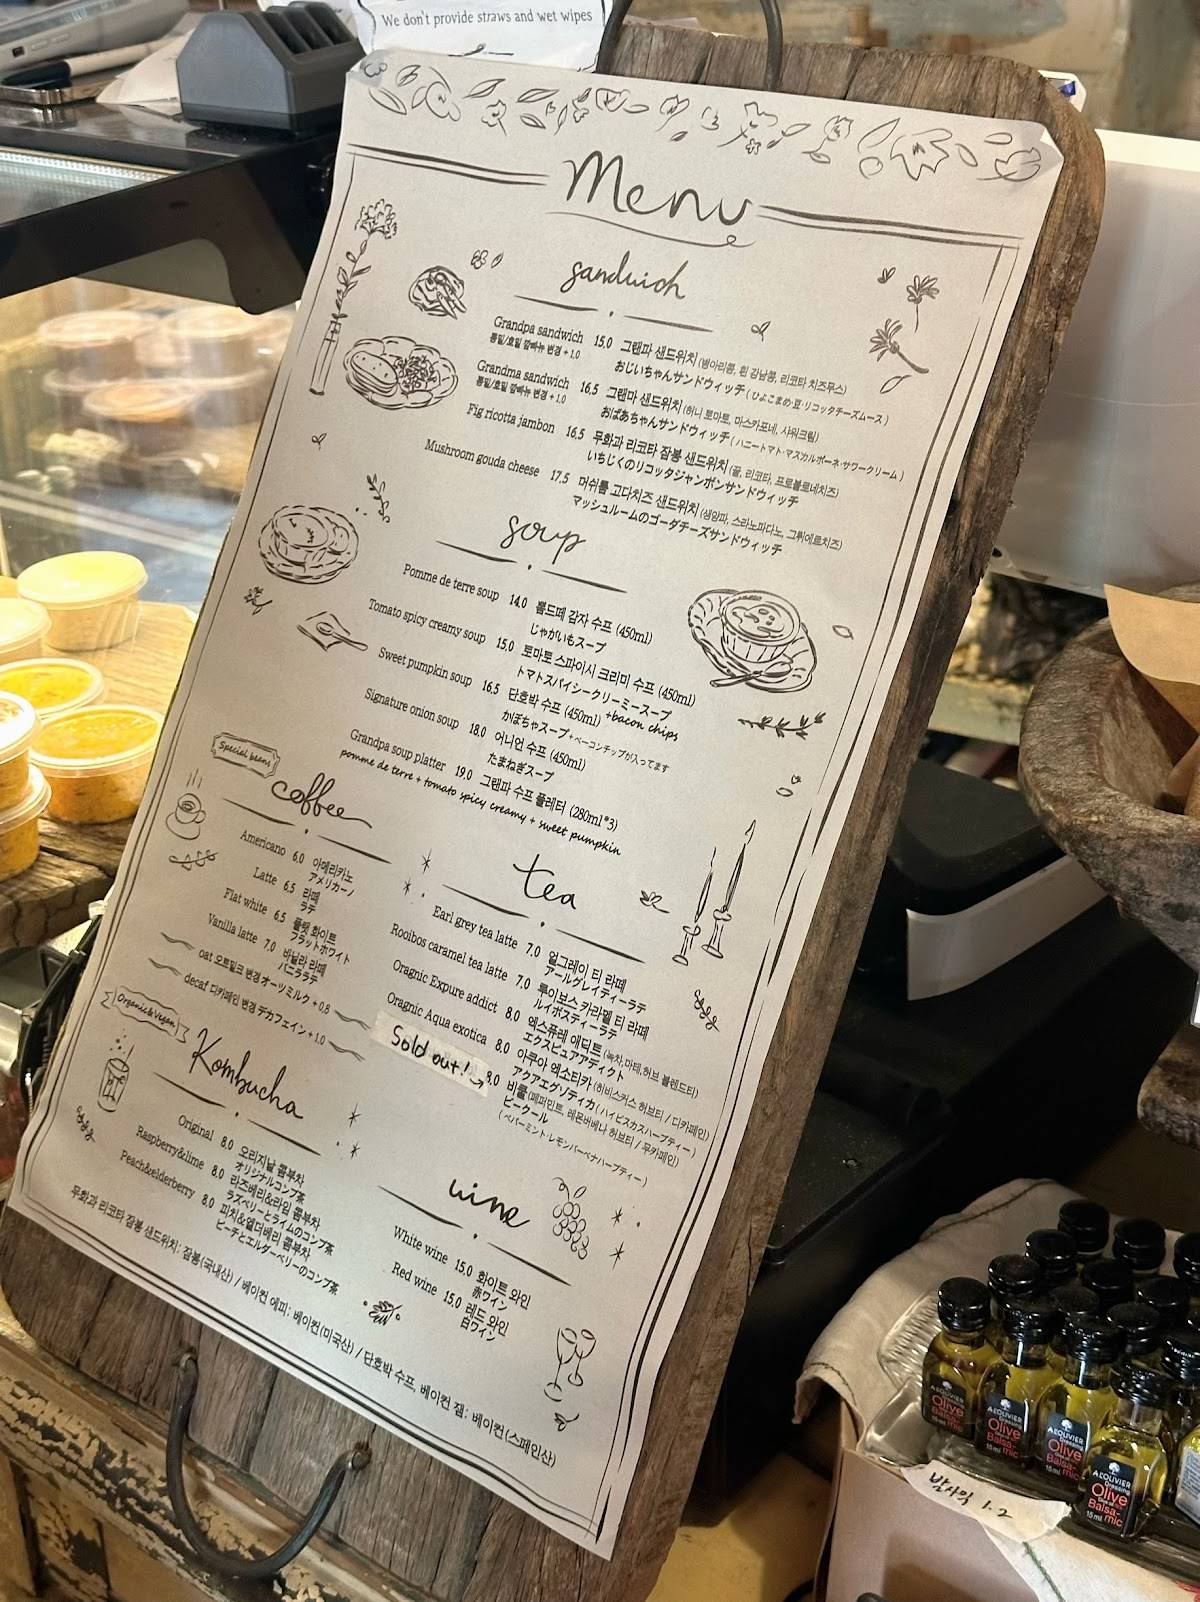 We don't provide straws and wet wipes
Menu
sandwich
Grandpa sandwich 15.0 그랜파 샌드위치 (병아리콩, 흰 강낭콩, 리코타 치즈무스)
통밀/호밀 깜빠뉴 변경 + 1.0 おじいちゃんサンドウィッチ (ひよこまめ·豆·リコッタチーズムース)
Grandma sandwich 16.5 그랜마 샌드위치 (허니 토마토, 마스카포네, 사워크림)
통밀/호밀 깜빠뉴 변경 + 1.0 おばあちゃんサンドウィッチ (ハニートマト·マスカルポーネ·サワークリーム)
Fig ricotta jambon 16.5 무화과 리코타 잠봉 샌드위치 (꿀, 리코타, 프로볼로네치즈)
いちじくのリコッタジャンボンサンドウィッチ
Mushroom gouda cheese 17.5 머쉬룸 고다치즈 샌드위치 (생양파, 스라노파다노, 그뤼에르치즈)
マッシュルームのゴーダチーズサンドウィッチ
soup
Pomme de terre soup 14.0 뽐드떼 감자 수프 (450ml)
じゃがいもスープ
Tomato spicy creamy soup 15.0 토마토 스파이시 크리미 수프 (450ml)
トマトスパイシークリーミースープ
Sweet pumpkin soup 16.5 단호박 수프 (450ml) +bacon chips
かぼちゃスープ+ベーコンチップが入ってます
Signature onion soup 18.0 어니언 수프 (450ml)
たまねぎスープ
Grandpa soup platter 19.0 그랜파 수프 플레터 (280ml*3)
pomme de terre + tomato spicy creamy + sweet pumpkin
Special beans
coffee
Americano 6.0 아메리카노
アメリカーノ
Latte 6.5 라떼
ラテ
Flat white 6.5 플랫 화이트
フラットホワイト
Vanilla latte 7.0 바닐라 라떼
バニララテ
oat 오트밀크 변경 オーツミルク + 0.8
decaf 디카페인 변경 デカフェイン + 1.0
tea
Earl grey tea latte 7.0 얼그레이 티 라떼
アールグレイティーラテ
Rooibos caramel tea latte 7.0 루이보스 카라멜 티 라떼
ルイボスティーラテ
Oragnic Expure addict 8.0 엑스퓨레 애딕트 (녹차,마테,허브 블렌드티)
エクスピュアアディクト
Oragnic Aqua exotica 8.0 아쿠아 엑소티카 (히비스커스 허브티 / 디카페인)
アクアエグゾティカ (ハイビスカスハーブティー)
Sold out! 8.0 비쿨 (페퍼민트, 레몬버베나 허브티 / 무카페인)
ビークール
(ペパーミント·レモンバーベナハーブティー)
Organic&Vegan
Kombucha
Original 8.0 오리지날 콤부차
オリジナルコンブ茶
Raspberry&lime 8.0 라즈베리&라임 콤부차
ラズベリーとライムのコンブ茶
Peach&elderberry 8.0 피치&엘더베리 콤부차
ピーチとエルダーベリーのコンブ茶
wine
White wine 15.0 화이트 와인
赤ワイン
Red wine 15.0 레드 와인
白ワイン
무화과 리코타 잠봉 샌드위치: 잠봉(국내산) / 베이컨 에피: 베이컨(미국산) / 단호박 수프, 베이컨 잼: 베이컨(스페인산)
AEOLIVIER
Dressing
Olive
Balsa-
mic
15 ml
발사믹 1.2